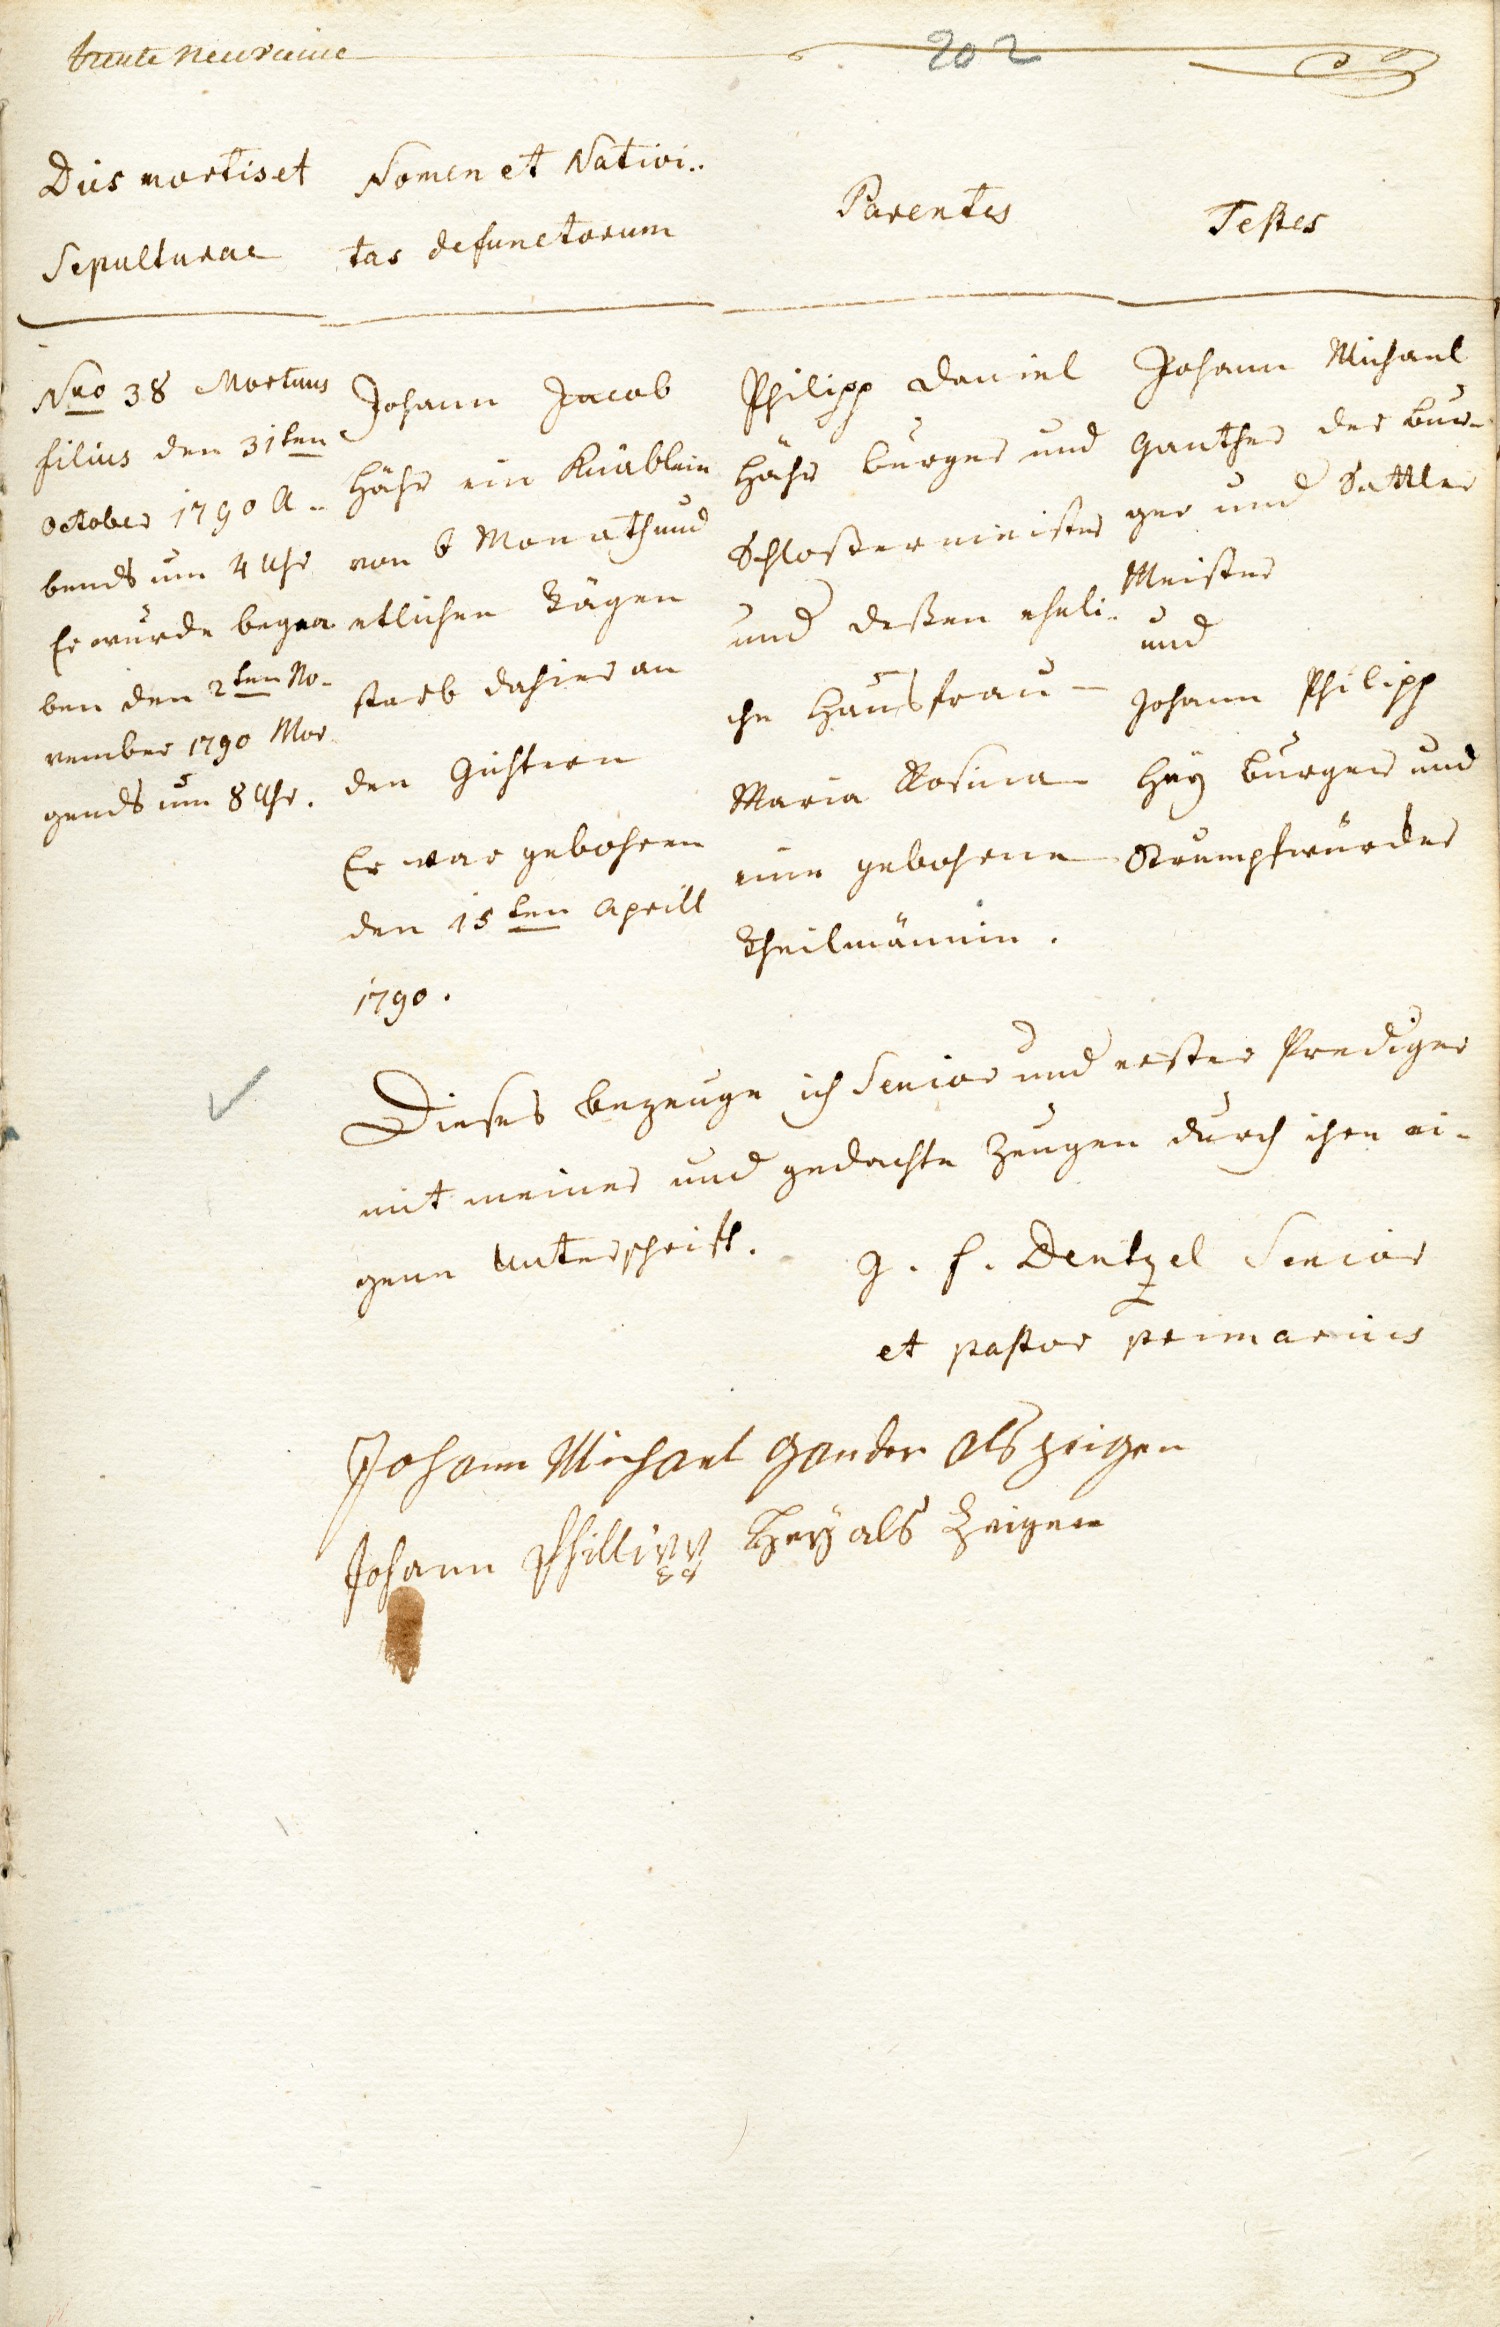 trente neuvieme
202
Dies mortis et
Sepulturae
Nomen et Nativi..
tas defunctorum
Parentes
Testes
Nro 38 Mortuus
filius den 31ten
October 1790 A..
bends um 4 Uhr
Er wurde begra
ben den 2ten No-
vember 1790 Mor-
gends um 8 Uhr.
Johann Jacob
Höhr ein Knäblein
von 6 Monath und
etlichen Tägen
starb dahier an
den Gichtern
Er war gebohren
den 15ten Aprill
1790.
Philipp Daniel
Höhr burger und
Schloßermeister
und deßen eheli-
che Hausfrau -
Maria Rosina
eine gebohrne
Theilmännin.
Johann Michael
Ganther der bur-
ger und Sattler
Meister
und
Johann Philipp
Hey burger und
Strumpfwürcker
Dieses bezeuge ich Senior und erster Prediger
mit meiner und gedachte Zeugen durch ihre ei-
gene Unterschrift.
G. F. Dentzel Senior
et pastor primarius
Johann Michael Gander als zeigen
Johann Phillipp Hey als Zeigen